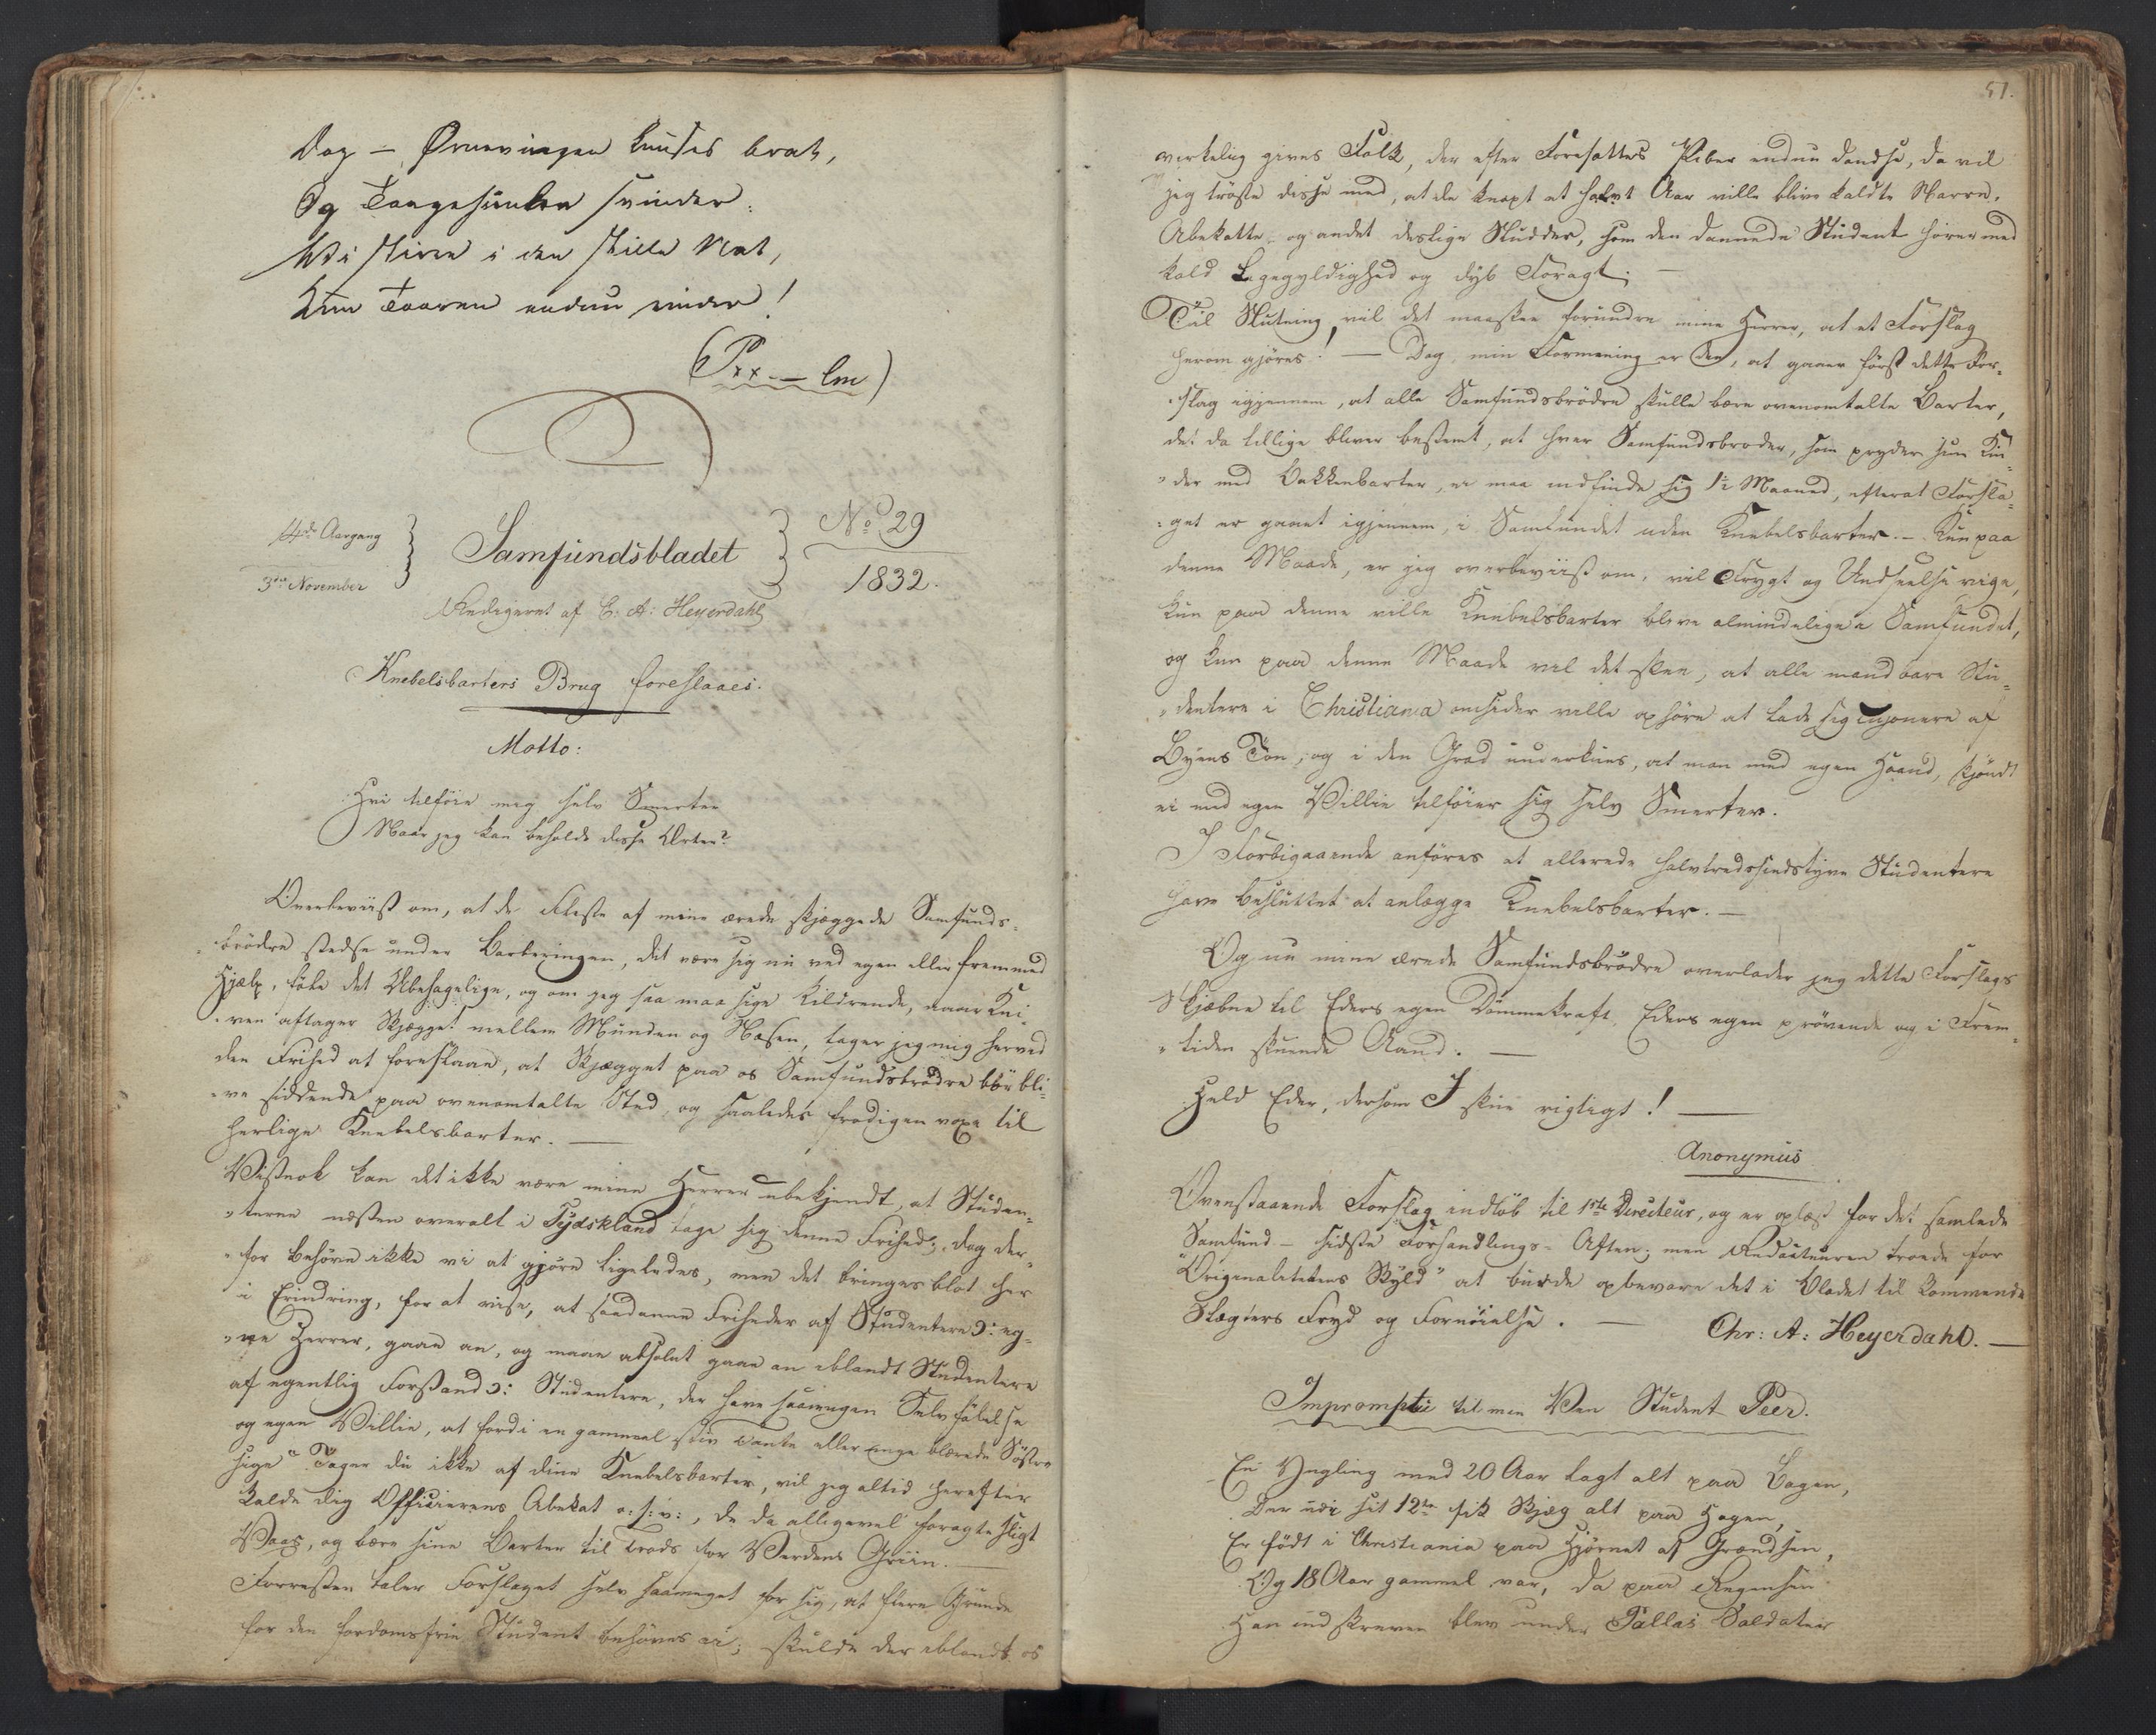 Dog — Prøvningen knuses brat,
Og Taagehimlen svinder.
Vi stirre i den stille Nat,
Kun Taaren endnu rinder!
(Pxx — lm)
4de Aargang
3die November
Samfundsbladet
No 29
1832.
Redigeret af C. A: Heyerdahl
Knebelsbarters Brug foreslaaes.
Motto:
Hvi tilføie mig selv Smerter
Naar jeg kan beholde disse Urter?
Overbeviist om, at de Fleste af mine ærede skjæggede Samfunds-
brödre stedse under Barberingen, det være sig nu ved egen eller fremmed
Hjælp, føle det Ubehagelige, og om jeg saa maa sige kildrende, naar Kni-
ven aftager Skjægget mellem Munden og Næsen, tager jeg mig herved
den Frihed at foreslaae, at Skjægget paa os Samfundsbrødre bør bli-
ve siddende paa ovenomtalte Sted, og saaledes frodigen voxe til
herlige Knebelsbarter. —
Vistnok kan det ikke være mine Herrer ubekjendt, at Studen-
terne næsten overalt i Tydskland tage sig denne Frihed; dog der-
for behøve ikke vi at gjöre ligeledes, men det bringes blot her
i Erindring, for at vise, at saadanne Friheder af Studentere ɔ: eg-
ne Herrer, gaae an, og maae absolut gaae an iblandt Studentere
af egentlig Forstand ɔ: Studentere, der have saamegen Selvfølelse
og egen Villie, at fordi en gammel stiv Tante eller unge Søstre
sige "Tager du ikke af dine Knebelsbarter, vil jeg altid herefter
kalde dig Officierens Abekat o: s: v:, de da alligevel foragte sligt
Vaas, og bære sine Barter til trods for Verdens Griin. —
Forresten taler Forslaget selv saameget for sig, at flere Grunde
for den fordomsfrie Student behøves ei; skulde der iblandt os
51.
virkelig gives Folk, der efter Foresattes Piber endnu dandse, da vil
jeg trøste disse med, at de knapt et halvt Aar ville blive kaldte Narre,
Abekatte og andet deslige Sludder, som den dannede Student hører med
kold Ligegyldighed og dyb Foragt; —
Til Slutning vil det maaskee forundre mine Herrer, at et Forslag
herom gjöres! — Dog min Formening er den, at gaaer först dette For-
slag igjennem, at alle Samfundsbrödre skulle bære ovenomtalte Barter,
det da tillige bliver bestemt, at hver Samfundsbroder, som pryder sin Kin-
der med Bakkenbarter, ei maa indfinde sig 1½ Maaned, efterat Forsla-
get er gaaet igjennem, i Samfundet uden Knebelsbarter. — Kun paa
denne Maade, er jeg overbeviist om, vil Frygt og Undseelse vige,
kun paa denne ville Knebelsbarter blive almindelige i Samfundet,
og kun paa denne Maade vil det skee, at alle mandbare Stu-
dentere i Christiania omsider ville ophöre at lade sig cujonere af
Byens Ton, og i den Grad underkues, at man med egen Haand, skjöndt
ei med egen Villie tilföier sig selv Smerter.
I Forbigaaende anföres at allerede halvtredsindstyve Studentere
have besluttet at anlægge Knebelsbarter. —
Og nu mine ærede Samfundsbrödre overlader jeg dette Forslags
Skjæbne til Eders egen Dömmekraft, Eders egen prövende og i Frem-
tiden skuende Aand. —
Held Eder, dersom I skue rigtigt! —
Anonymus
Ovenstaaende Forslag indlöb til 1ste Directeur, og er oplæst for det samlede
Samfund — sidste Forhandlings-Aften; men Redacteuren troede for
"Originalitetens Skyld" at burde opbevare det i Bladet til kommende
Slægters Fryd og Fornöielse. —
Chr: A: Heyerdahl. —
Impromptu til min Ven Student Peer.
En Yngling med 20 Aar lagt alt paa Bagen,
Der udi sit 12te fik Skjæg alt paa Hagen,
Er födt i Christiania paa Hjörnet af Grændsen,
Og 18 Aar gammel var, da paa Regensen
Han indskreven blev under Pallas Soldater